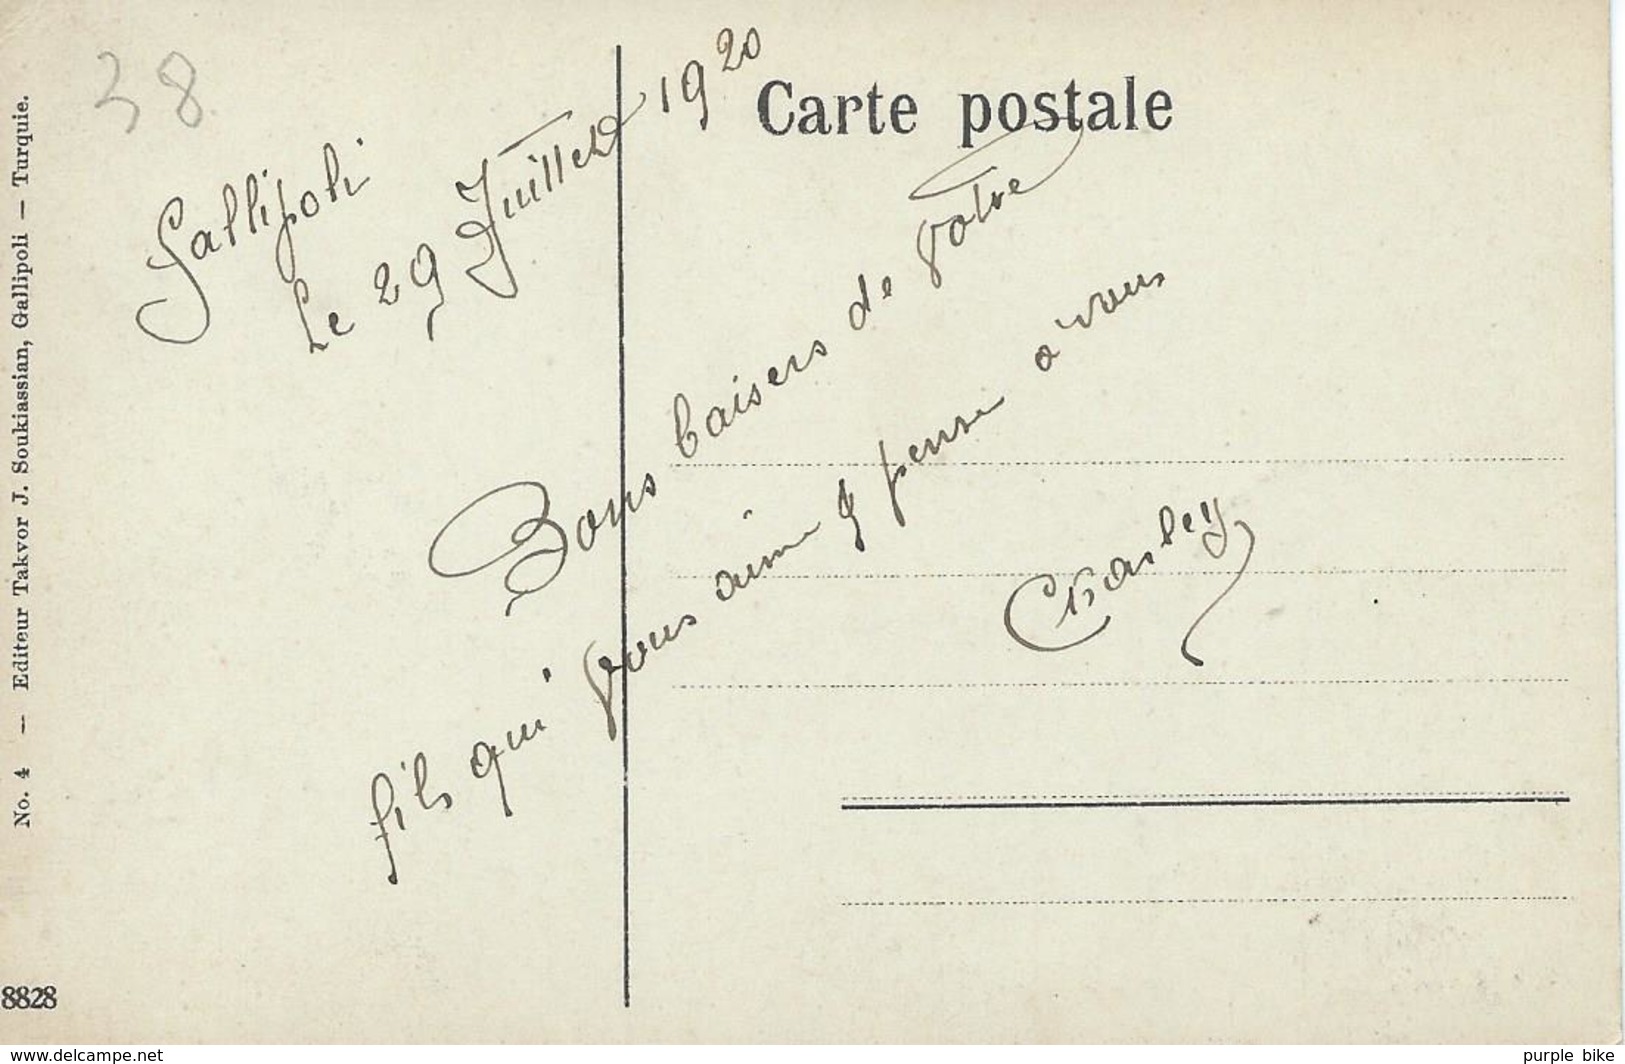 38
Carte postale
Gallipoli
Le 29 Juillet 1920
Bons baisers de votre
fils qui vous aime & pense à vous
Charley
No. 4 — Editeur Takvor J. Soukiassian, Gallipoli — Turquie.
8828
www.delcampe.net
purple bike